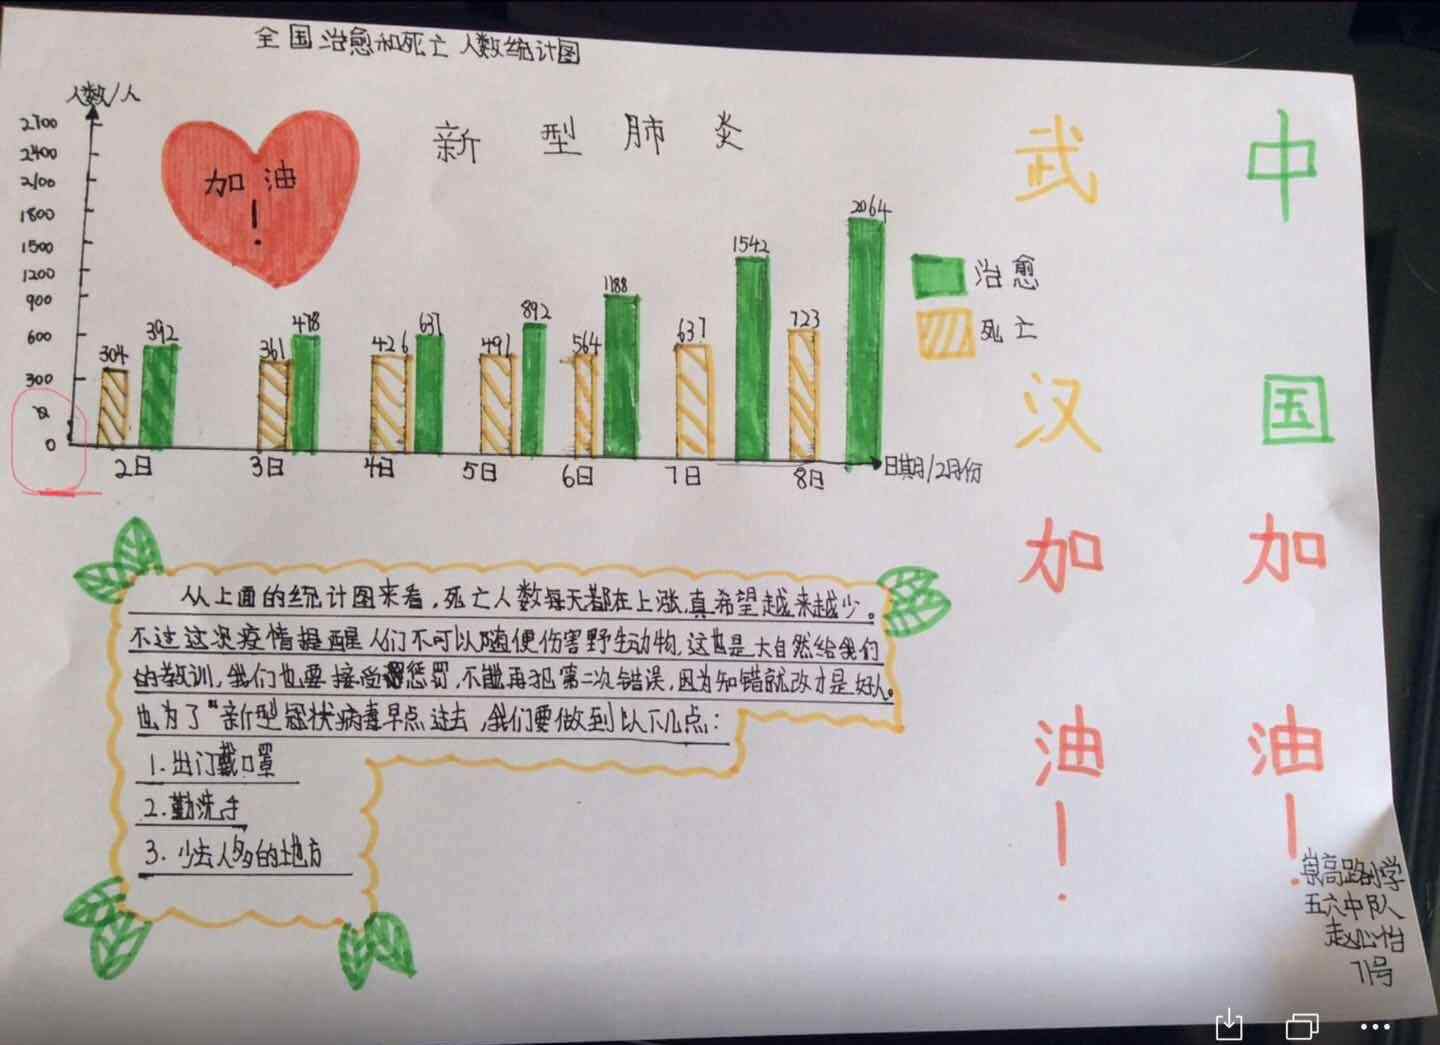 全国治愈和死亡人数统计图
人数/人
2700
2400
2100
1800
1500
1200
900
600
300
0
加油
!
新型肺炎
304 392
361 478
426 637
491 892
564 1188
637 1542
723 2064
2日 3日 4日 5日 6日 7日 8日
日期/2月份
治愈
死亡
从上面的统计图来看,死亡人数每天都在上涨,真希望越来越少。
不过这次疫情提醒人们不可以随便伤害野生动物,这也是大自然给我们
的教训,我们也要接受惩罚,不能再犯第二次错误,因为知错就改才是好人。
也为了“新型冠状病毒早点过去,我们要做到以下几点:
1.出门戴口罩
2.勤洗手
3.少去人多的地方
武汉加油!
中国加油!
高路小学
五六中队
赵心怡
71号